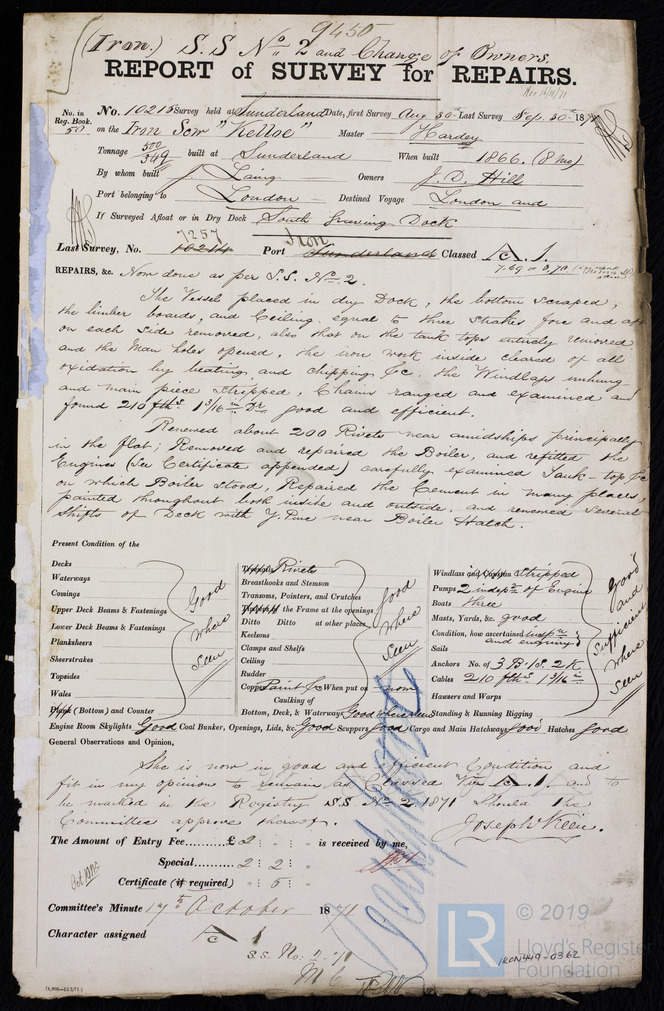 9450
(Iron.) S.S No 2 and Change of Owners.
REPORT of SURVEY for REPAIRS.
No. in Reg. Book. 50
No. 10215 Survey held at Sunderland Date, first Survey Aug 30th Last Survey Sep. 30th 1871
on the Iron Scw "Kelloe" Master Hardey
Tonnage 500/349 built at Sunderland When built 1866. (8 mo)
By whom built J Laing Owners J. D. Hill
Port belonging to London Destined Voyage London and
If Surveyed Afloat or in Dry Dock South Graving Dock
Last Survey, No. 7257 10214 Port Iron Sunderland Classed A. 1.
7.69 a 8,70
REPAIRS, &c. Now done as per S.S. No 2.
The Vessel placed in dry Dock, the bottom scraped,
the limber boards, and Ceiling, equal to three strakes fore and aft
on each side removed, also that on the tank tops entirely removed
and the Man holes opened, the iron work inside cleared of all
oxidation by beating, and chipping &c. the Windlass unhung
and main piece stripped, Chains ranged and examined and
found 210 fths 1 3/16 in Dr good and efficient.
Renewed about 200 Rivets near amidships principally
in the flat; Removed and repaired the Boiler, and refitted the
Engines (See Certificate appended) carefully examined Tank-top &c
on which Boiler stood, Repaired the Cement in many places,
painted throughout both inside and outside, and renewed several
shifts of Deck with Y. Pine near Boiler Hatch.
Present Condition of the
Decks
Waterways
Comings
Upper Deck Beams & Fastenings
Lower Deck Beams & Fastenings
Planksheers
Sheerstrakes
Topsides
Wales
Plank (Bottom) and Counter
Good where seen
Rivets
Breasthooks and Stemson
Transoms, Pointers, and Crutches
the Frame at the openings
Ditto Ditto at other places
Keelsons
Clamps and Shelfs
Ceiling
Rudder
Copper Paint &c When put on now
Caulking of
Bottom, Deck, & Waterways Good where seen
Good where seen
Windlass and Capstan Stripped
Pumps 2 indept of Engine
Boats three
Masts, Yards, &c. good
Condition, how ascertained Inspn and enquiry
Sails
Anchors No. of 3 B. 1 S. 2 K
Cables 210 fths 1 3/16 in
Hausers and Warps
Standing & Running Rigging
Good and sufficient where seen
Engine Room Skylights Good Coal Bunker, Openings, Lids, &c. Good Scuppers Good Cargo and Main Hatchways Good Hatches Good
General Observations and Opinion,
She is now in good and efficient Condition and
fit in my opinion to remain as Classed viz A. 1. and to
be marked in the Registry S.S. No 2. 1871 should the
Committee approve thereof.
Joseph W Keen.
The Amount of Entry Fee......... £ 2 : " : " is received by me,
Special......... 2 : 2 : "
Certificate (if required) " : 5 : "
Committee's Minute 17th October 1871
Character assigned A 1
S.S. No: 2-71
© 2019
LR
Lloyd's Register
Foundation
IRON449-0362